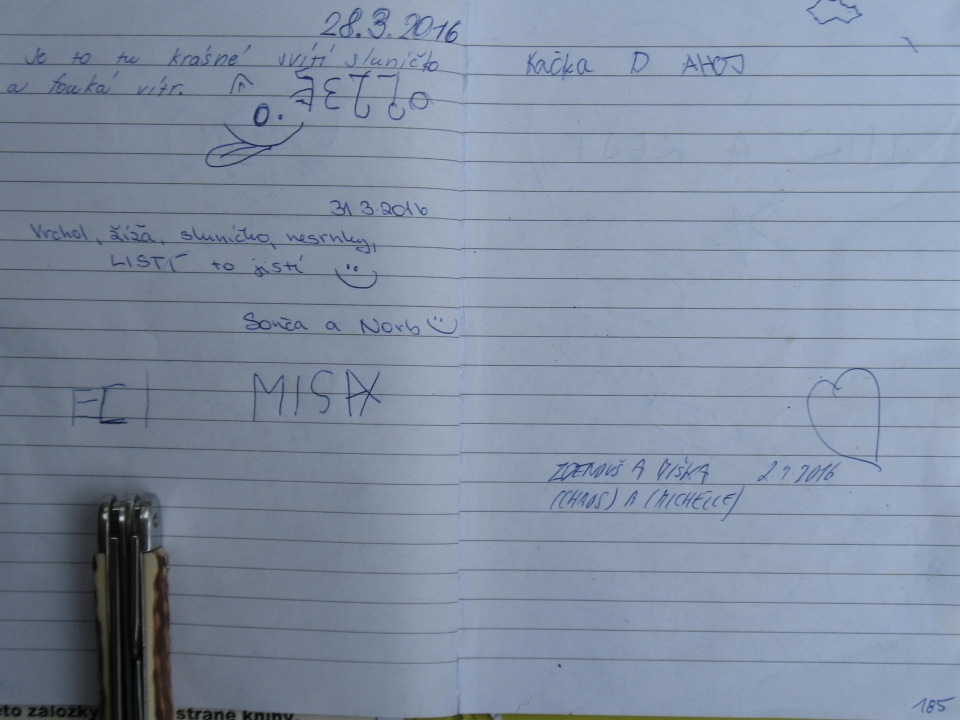 28.3.2016
Je to tu krásné svítí sluníčko
a fouká vítr.
31 3.2016
Vrchol, žížá, sluníčko, nesrnky,
LISTÍ to jistí
Sonča a Norb
MISA
Kačka D AHOJ
ZDENOUŠ A MIŠKA 2.4.2016
(CHAOS) A (MICHELLE)
185
eto založky strane knihy